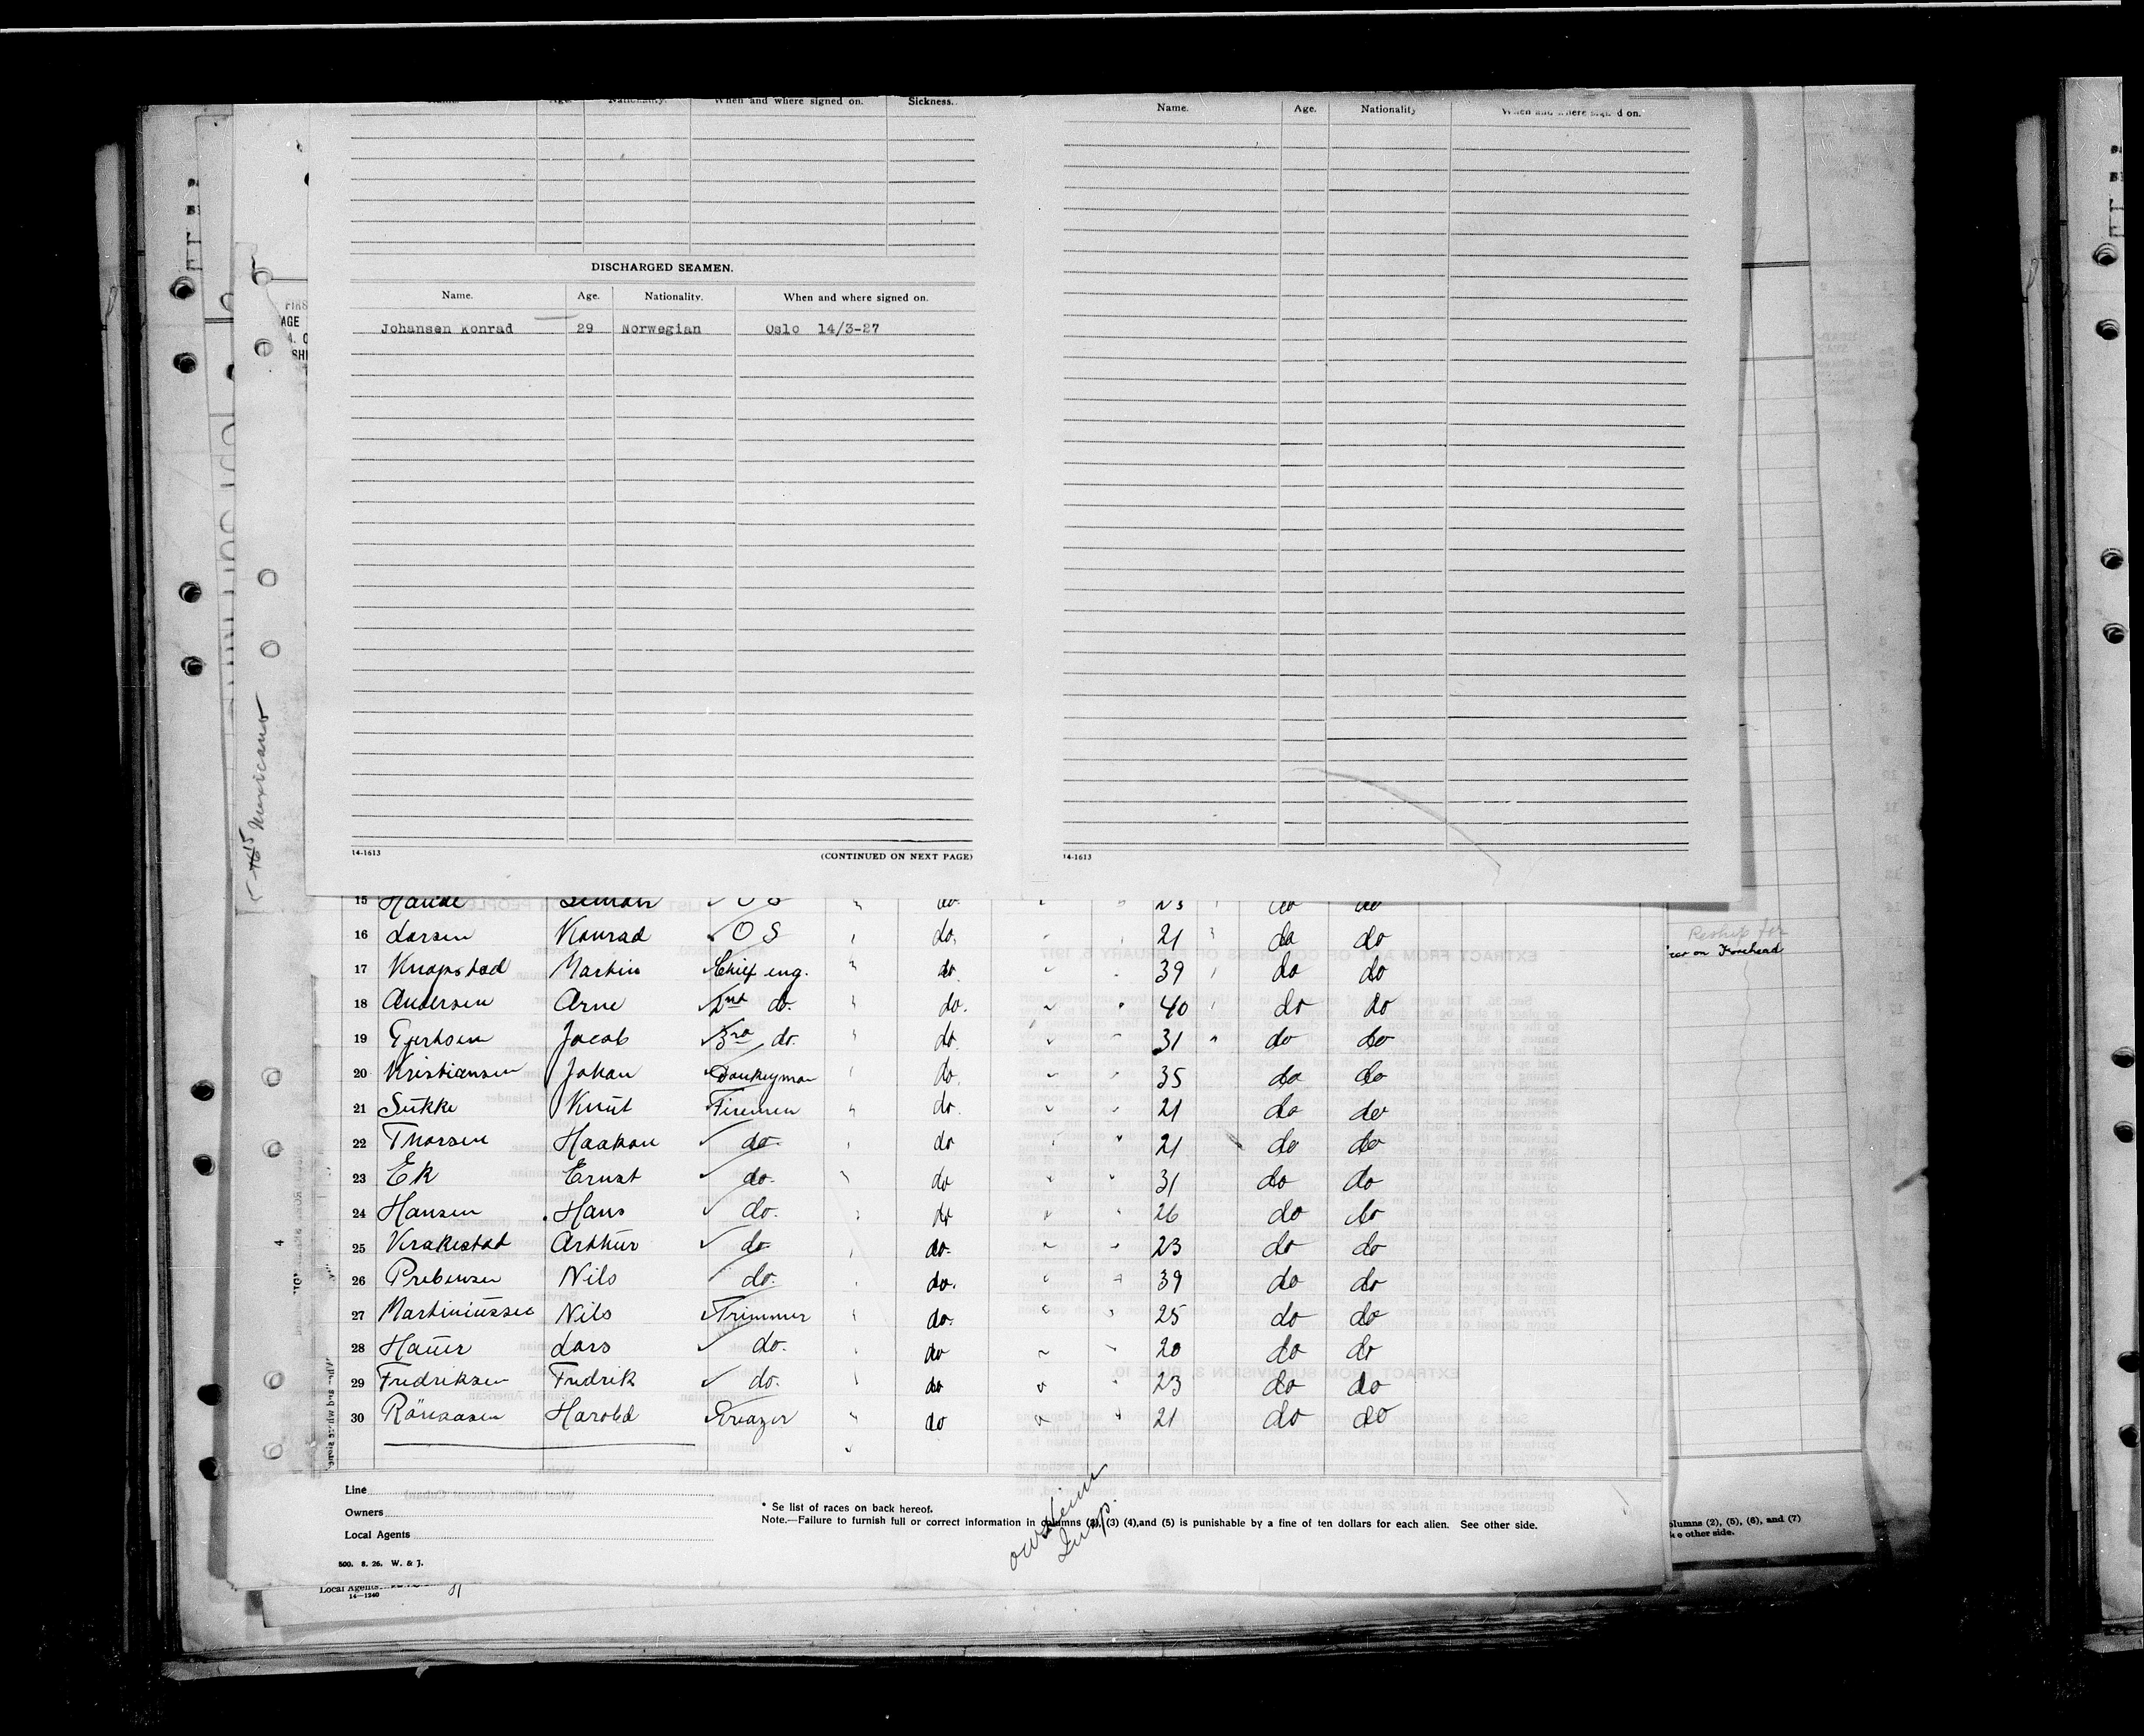 Name. Age. Nationality. When and where signed on. Sickness.
DISCHARGED SEAMEN.
Name. Age. Nationality. When and where signed on.
Johansen Konrad 29 Norwegian Oslo 14/3-27
14-1613 (CONTINUED ON NEXT PAGE)
Name. Age. Nationality When and where signed on.
14-1613
15 Mexicano
15 OS do 23 do do
16 Larsen Konrad OS do. 21 do do
17 Knapstad Martin Chief eng. do 39 do do
18 Andersen Arne 2nd do. do. 40 do do
19 Gjertsen Jacob 3rd do. do. 31 do do
20 Kristiansen Johan Donkeyman do. 35 do do
21 Sukke Knut Firemen do. 21 do do
22 Thorsen Haakon do. do 21 do do
23 Ek Ernst do. do 31 do do
24 Hansen Hans do. do 26 do do
25 Krakestad Arthur do do. 23 do do
26 Prebensen Nils do. do. 39 do do
27 Martiniussen Nils Trimmer do. 25 do do
28 Hauer Lars do. do 20 do do
29 Fredriksen Fredrik do. do 23 do do
30 Harold Greazer do 21 do do
on Forehead
Line
Owners
Local Agents
* Se list of races on back hereof.
Note.—Failure to furnish full or correct information in columns (2), (3) (4),and (5) is punishable by a fine of ten dollars for each alien. See other side.
500. 8. 26. W. & J.
Local Agents
14—1240
columns (2), (5), (6), and (7)
other side.